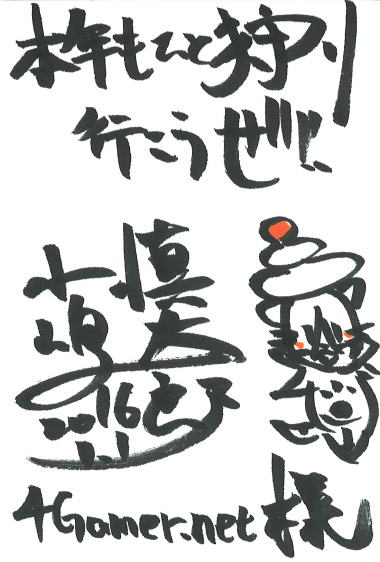 本年もひと狩り
行こうぜ!!!
小嶋慎太郎
2016
1.1
4Gamer.net様